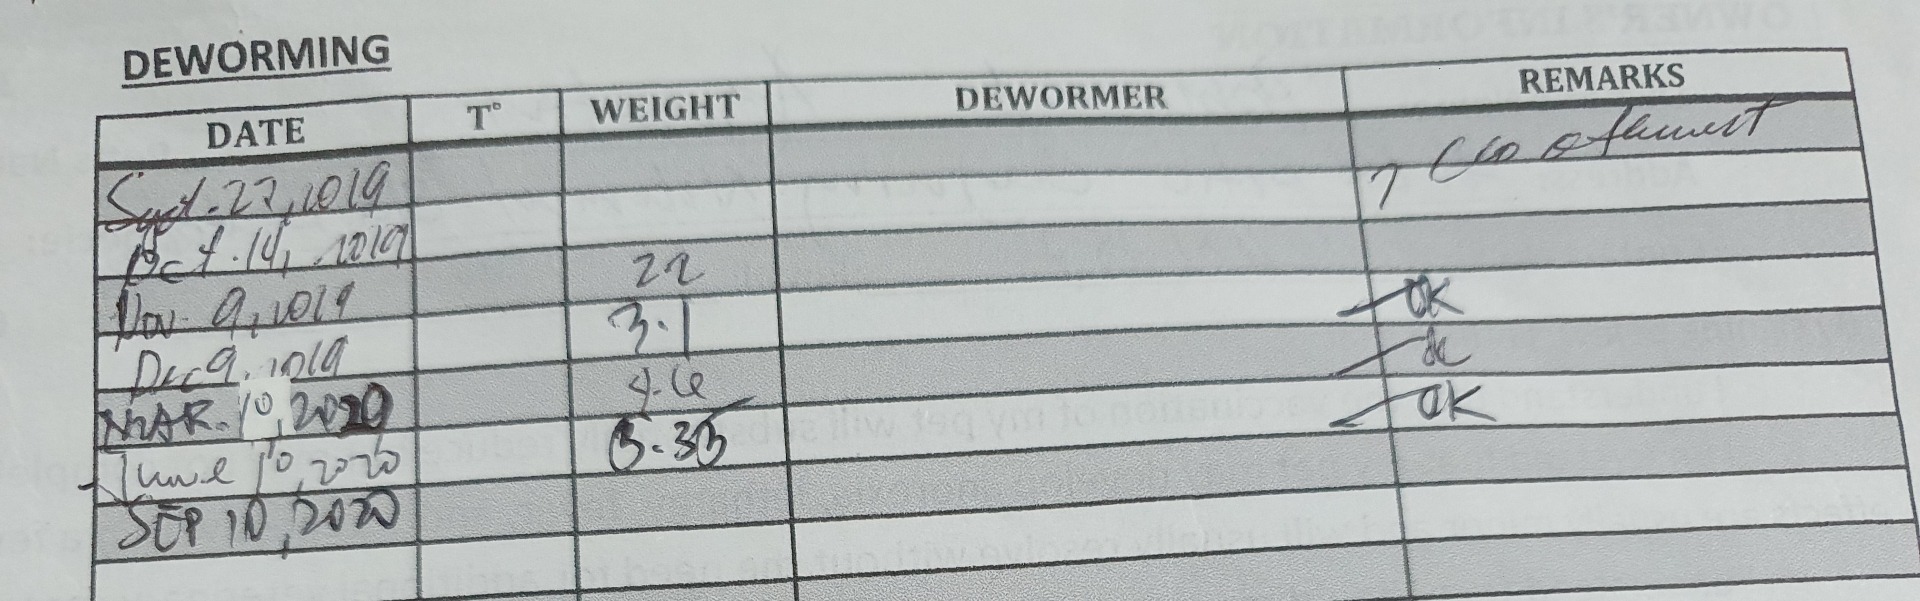 DEWORMING
DATE T° WEIGHT DEWORMER REMARKS
Sept. 27, 2019
Oct. 14, 2019 7
Nov. 9, 2019 22
Dec 9, 2019 3.1 OK
MAR. 10, 2020 4.6
June 10, 2020 5.35 OK
SEP 10, 2020